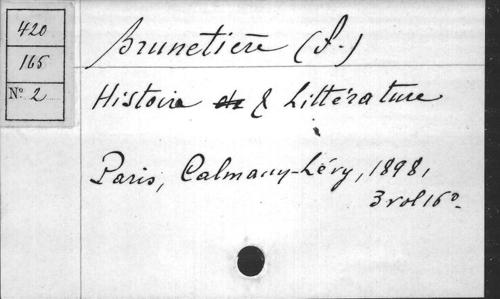 420
165
Nº 2
Brunetière (F.)
Histoire & Littérature
Paris, Calmann-Lévy, 1898,
3 vol 16º.